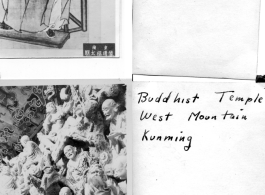 Buddhist Temple
West Mountain
Kunming